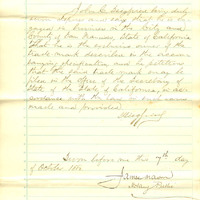 John A. Gasppera being duly
sworn deposes and says that he is
engaged in business in the City and
County of San Francisco, State of California
that he is the exclusive owner of the
trade mark described in the annexed
specification and he petitions
that the same trade mark may be
filed in the office of the Secretary of
State of the State of California, in
accordance with the law in such cases
made and provided

Sworn before me this 7th day
of October 188
James Mason
Notary Public